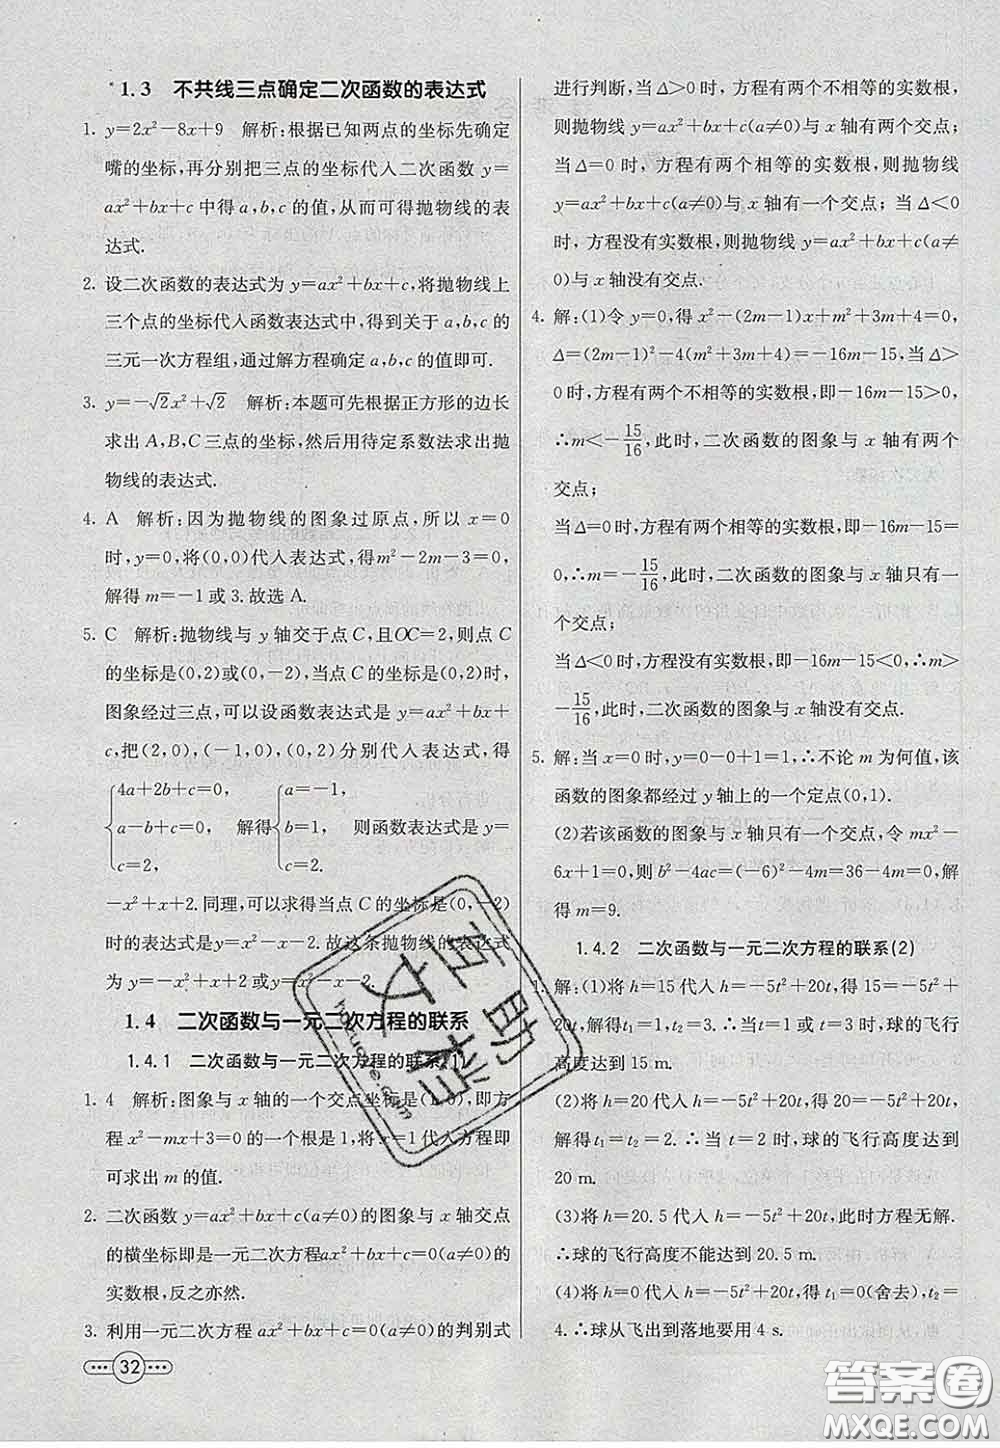 1.3 不共线三点确定二次函数的表达式
1. y=2x²-8x+9 解析:根据已知两点的坐标先确定
嘴的坐标,再分别把三点的坐标代入二次函数 y=
ax²+bx+c 中得 a,b,c 的值,从而可得抛物线的表
达式.
2. 设二次函数的表达式为 y=ax²+bx+c,将抛物线上
三个点的坐标代入函数表达式中,得到关于 a,b,c 的
三元一次方程组,通过解方程确定 a,b,c 的值即可.
3. y=-√2x²+√2 解析:本题可先根据正方形的边长
求出 A,B,C 三点的坐标,然后用待定系数法求出抛
物线的表达式.
4. A 解析:因为抛物线的图象过原点,所以 x=0
时,y=0,将(0,0)代入表达式,得 m²-2m-3=0,
解得 m=-1 或 3.故选 A.
5. C 解析:抛物线与 y 轴交于点 C,且OC=2,则点 C
的坐标是(0,2)或(0,-2),当点 C 的坐标是(0,2)时,
图象经过三点,可以设函数表达式是 y=ax²+bx+
c,把(2,0),(-1,0),(0,2)分别代入表达式,得
{4a+2b+c=0, a-b+c=0, c=2, 解得 {a=-1, b=1, c=2. 则函数表达式是 y=
-x²+x+2.同理,可以求得当点 C 的坐标是(0,-2)
时的表达式是 y=x²-x-2.故这条抛物线的表达式
为 y=-x²+x+2 或 y=x²-x-2.
1.4 二次函数与一元二次方程的联系
1.4.1 二次函数与一元二次方程的联系(1)
1. 4 解析:图象与 x 轴的一个交点坐标是(1,0),即方
程 x²-mx+3=0 的一个根是 1,将 x=1 代入方程即
可求出 m 的值.
2. 二次函数 y=ax²+bx+c(a≠0)的图象与 x 轴交点
的横坐标即是一元二次方程ax²+bx+c=0(a≠0)的
实数根,反之亦然.
3. 利用一元二次方程 ax²+bx+c=0(a≠0)的判别式
32
进行判断,当 Δ>0 时,方程有两个不相等的实数根,
则抛物线 y=ax²+bx+c(a≠0)与 x 轴有两个交点;
当 Δ=0 时,方程有两个相等的实数根,则抛物线
y=ax²+bx+c(a≠0)与 x 轴有一个交点;当 Δ<0
时,方程没有实数根,则抛物线 y=ax²+bx+c(a≠
0)与 x 轴没有交点.
4. 解:(1)令 y=0,得 x²-(2m-1)x+m²+3m+4=0,
Δ=(2m-1)²-4(m²+3m+4)=-16m-15,当 Δ>
0 时,方程有两个不相等的实数根,即-16m-15>0,
∴m<-15/16,此时,二次函数的图象与 x 轴有两个
交点;
当 Δ=0 时,方程有两个相等的实数根,即-16m-15=
0,∴m=-15/16,此时,二次函数的图象与 x 轴只有一
个交点;
当 Δ<0 时,方程没有实数根,即-16m-15<0,∴m>
-15/16,此时,二次函数的图象与 x 轴没有交点.
5. 解:当 x=0 时,y=0-0+1=1,∴不论 m 为何值,该
函数的图象都经过 y 轴上的一个定点(0,1).
(2)若该函数的图象与 x 轴只有一个交点,令 mx²-
6x+1=0,则 b²-4ac=(-6)²-4m=36-4m=0,解
得 m=9.
1.4.2 二次函数与一元二次方程的联系(2)
1. 解:(1)将 h=15 代入 h=-5t²+20t,得 15=-5t²
+20t,解得t₁=1,t₂=3.当 t=1 或 t=3 时,球的飞行
高度达到 15 m.
(2)将 h=20 代入 h=-5t²+20t,得 20=-5t²+20t,
解得 t₁=t₂=2.∴当 t=2 时,球的飞行高度达到
20 m.
(3)将 h=20.5 代入 h=-5t²+20t,此时方程无解.
∴球的飞行高度不能达到 20.5 m.
(4)将 h=0 代入 h=-5t²+20t,得 t₁=0(舍去),t₂=
4.∴球从飞出到落地要用 4 s.
互助文档
hdzuoye.com
答案圈
MXQE.COM